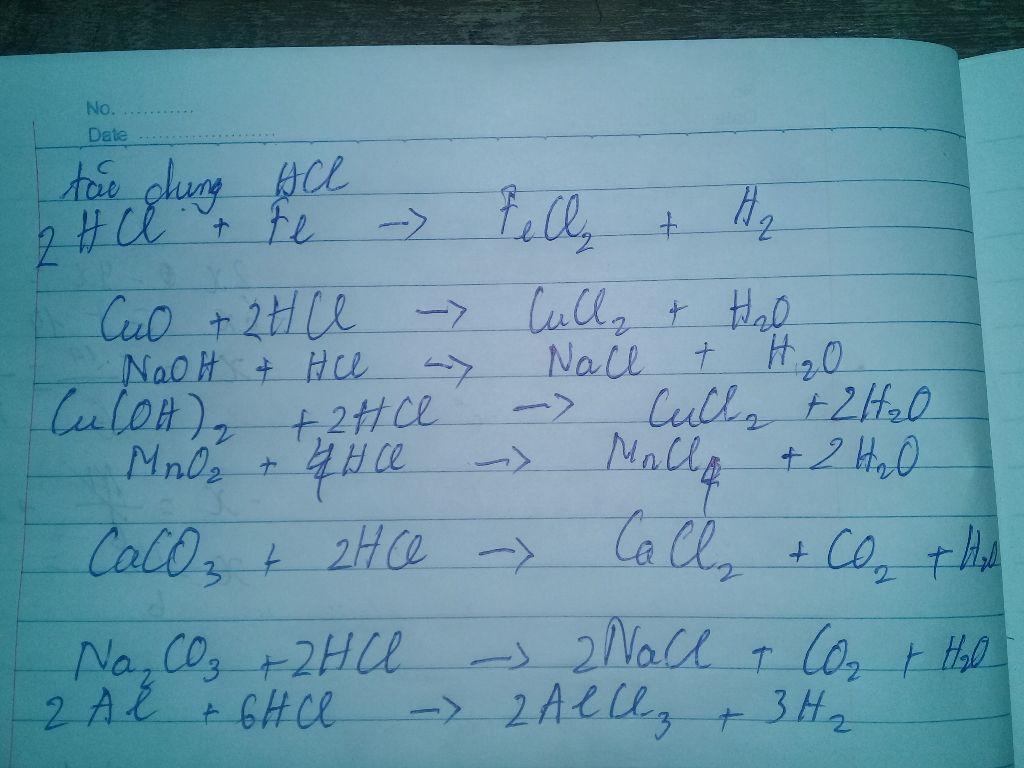 No. ...........
Date .......................
tác dụng HCl
2 HCl + Fe -> FeCl₂ + H₂
CuO + 2HCl -> CuCl₂ + H₂O
NaOH + HCl -> NaCl + H₂O
Cu(OH)₂ + 2HCl -> CuCl₂ + 2H₂O
MnO₂ + 4HCl -> MnCl₄ + 2H₂O
CaCO₃ + 2HCl -> CaCl₂ + CO₂ + H₂O
Na₂CO₃ + 2HCl -> 2NaCl + CO₂ + H₂O
2Al + 6HCl -> 2AlCl₃ + 3H₂